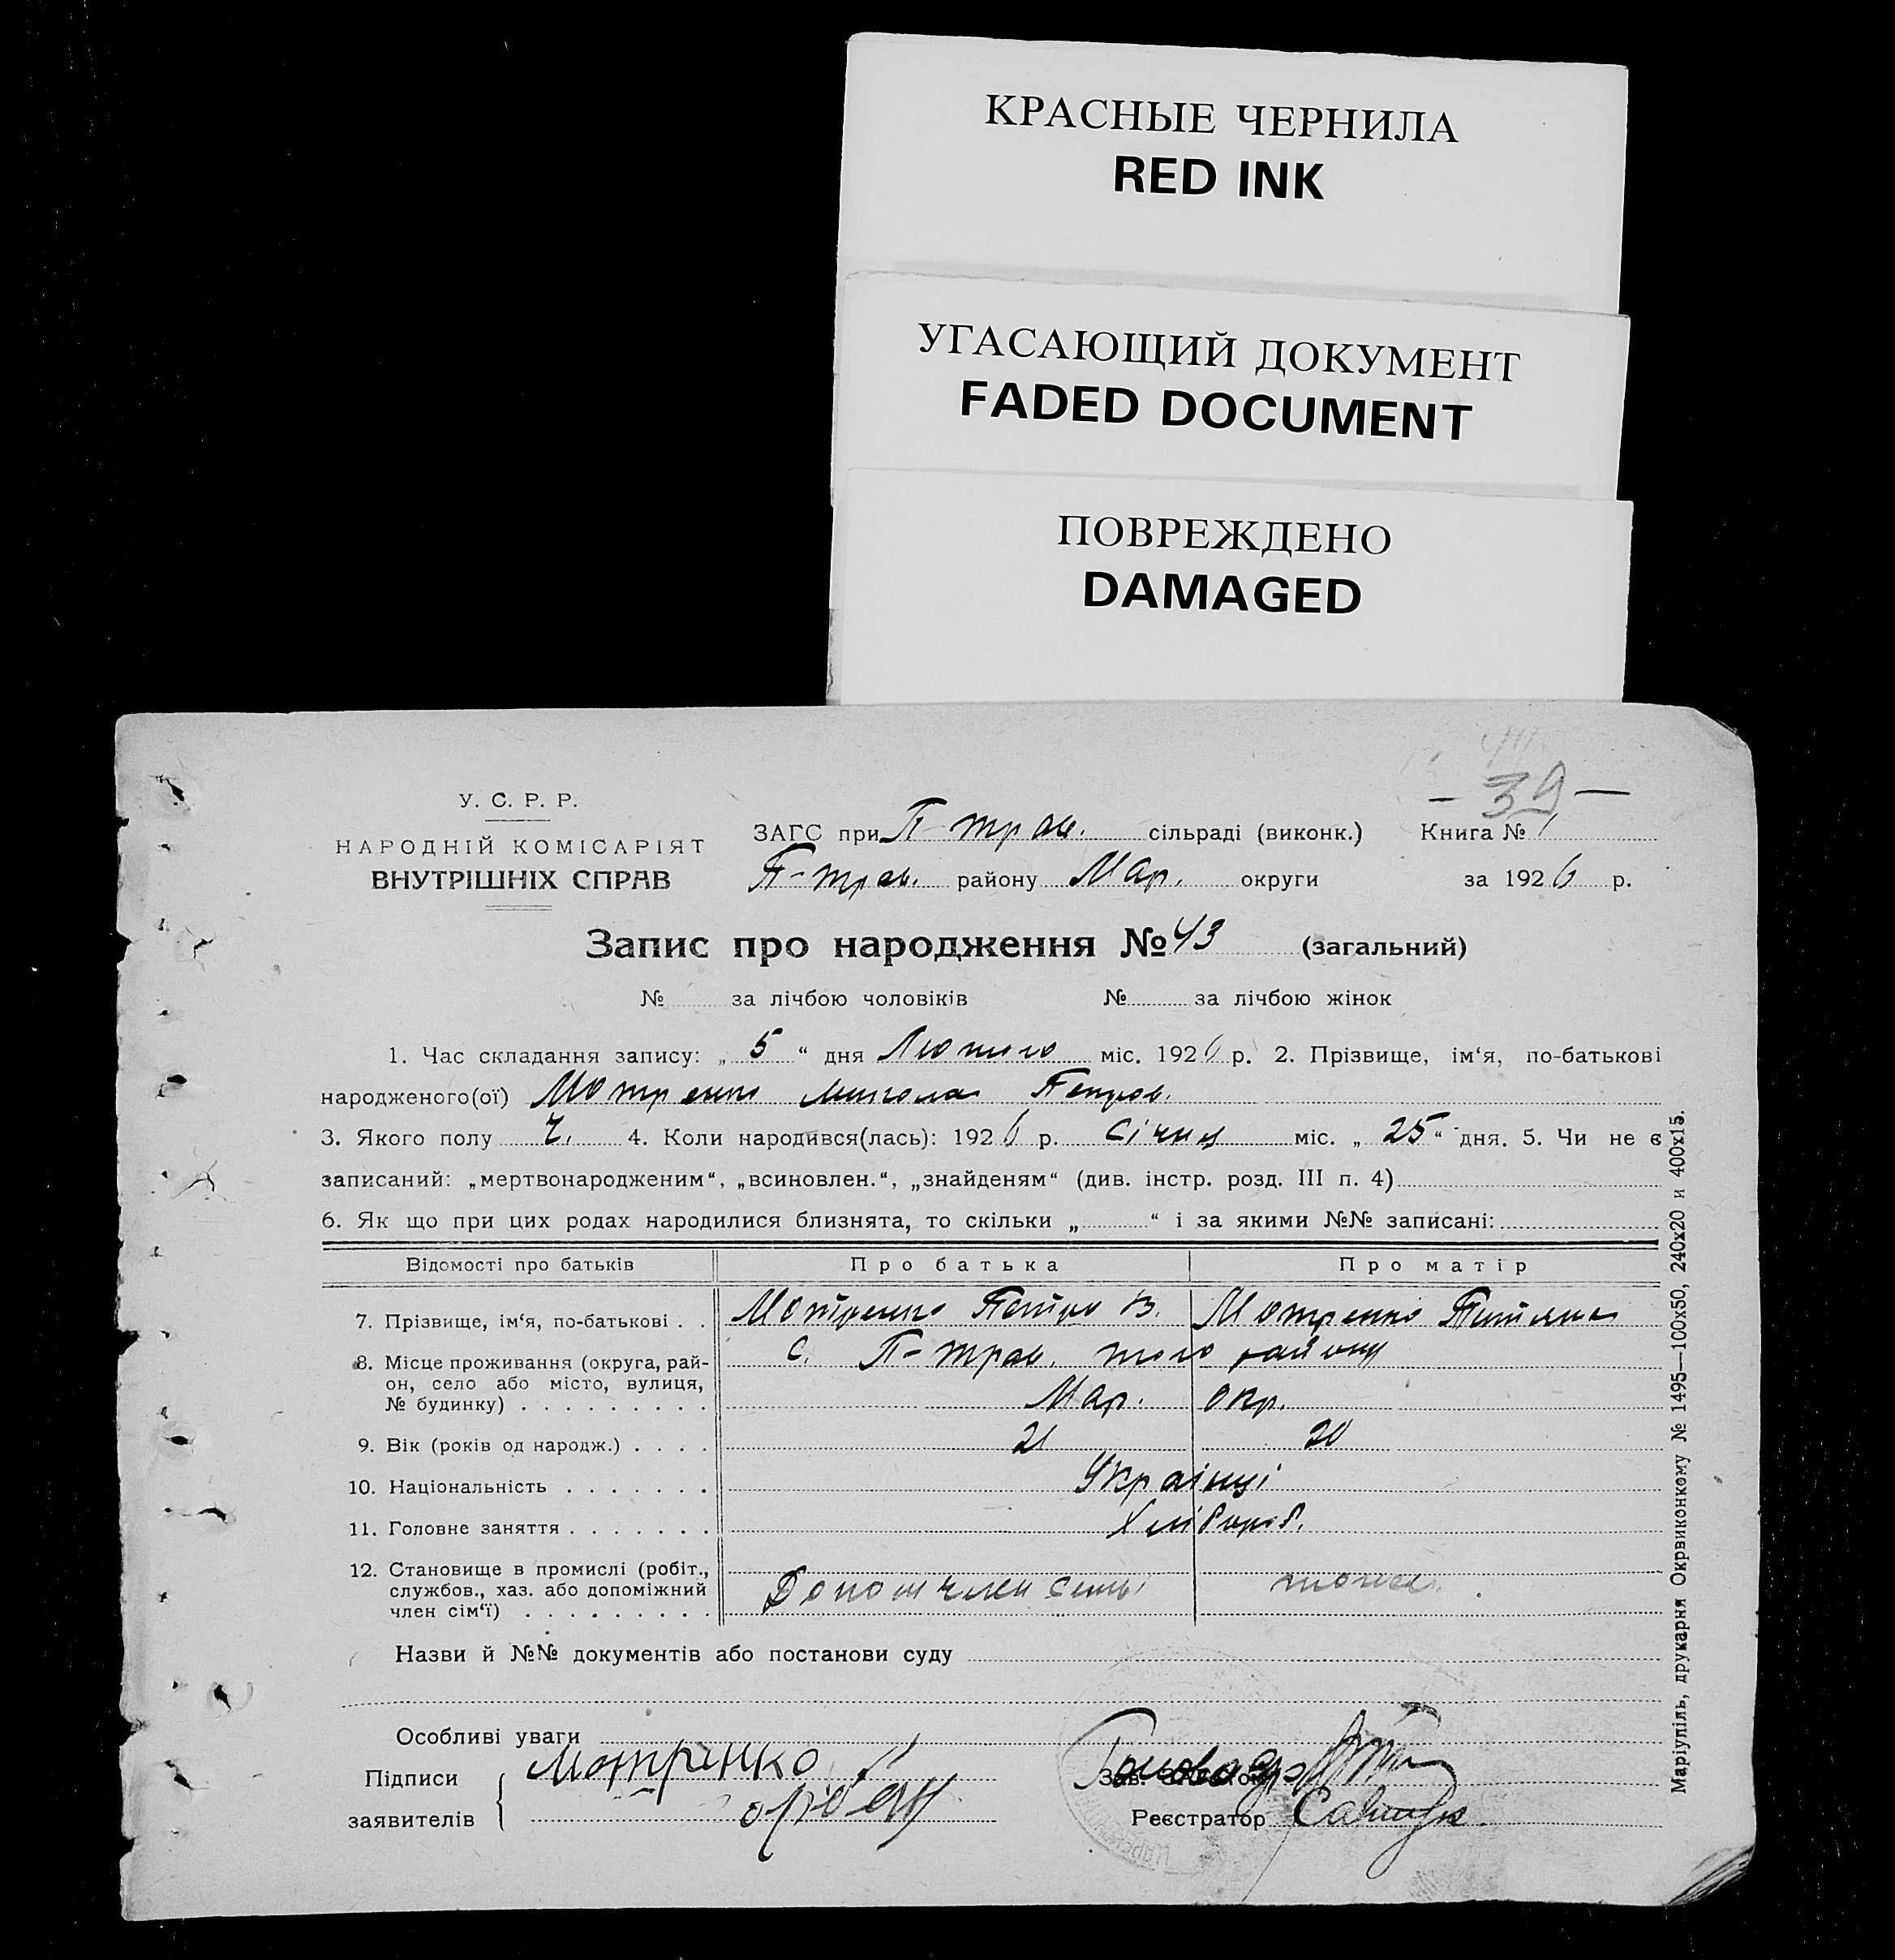 КРАСНЫЕ ЧЕРНИЛА
RED INK
УГАСАЮЩИЙ ДОКУМЕНТ
FADED DOCUMENT
ПОВРЕЖДЕНО
DAMAGED
– 39 –
У. С. Р. Р.
НАРОДНІЙ КОМІСАРІЯТ
ВНУТРІШНІХ СПРАВ
ЗАГС при П-трав. сільраді (виконк.) Книга № 1
П-трав. району Мар. округи за 1926 р.
Запис про народження № 43 (загальний)
№ за лічбою чоловіків № за лічбою жінок
1. Час складання запису: „ 5 “ дня Лютого міс. 1926 р. 2. Прізвище, ім‘я, по-батькові
народженого(ої) Мотренко Микола Петров.
3. Якого полу ч. 4. Коли народився(лась): 1926 р. Січня міс. „ 25 “ дня. 5. Чи не є
записаний: „мертвонародженим“, „всиновлен.“, „знайденям“ (див. інстр. розд. III п. 4)
6. Як що при цих родах народилися близнята, то скільки „ “ і за якими №№ записані:
Відомості про батьків Про батька Про матір
7. Прізвище, ім‘я, по-батькові . . Мотренко Петро В. Мотренко Тетяна
8. Місце проживання (округа, рай-
он, село або місто, вулиця,
№ будинку) . . . . . . . . .
с. П-трав. того району
Мар. окр.
9. Вік (років од народж.) . . . . 21 20
10. Національність . . . . . . . Українці
11. Головне заняття . . . . . . . Хлібороб.
12. Становище в промислі (робіт.,
службов., хаз. або допоміжний
член сім‘ї) . . . . . . . . .
Допом член семьі тоже
Назви й №№ документів або постанови суду
Особливі уваги
Підписи
заявителів
Мотренко
Зав.
Реєстратор
Маріупіль, друкарня Окрвиконкому № 1495—100х50, 240х20 и 400х15.